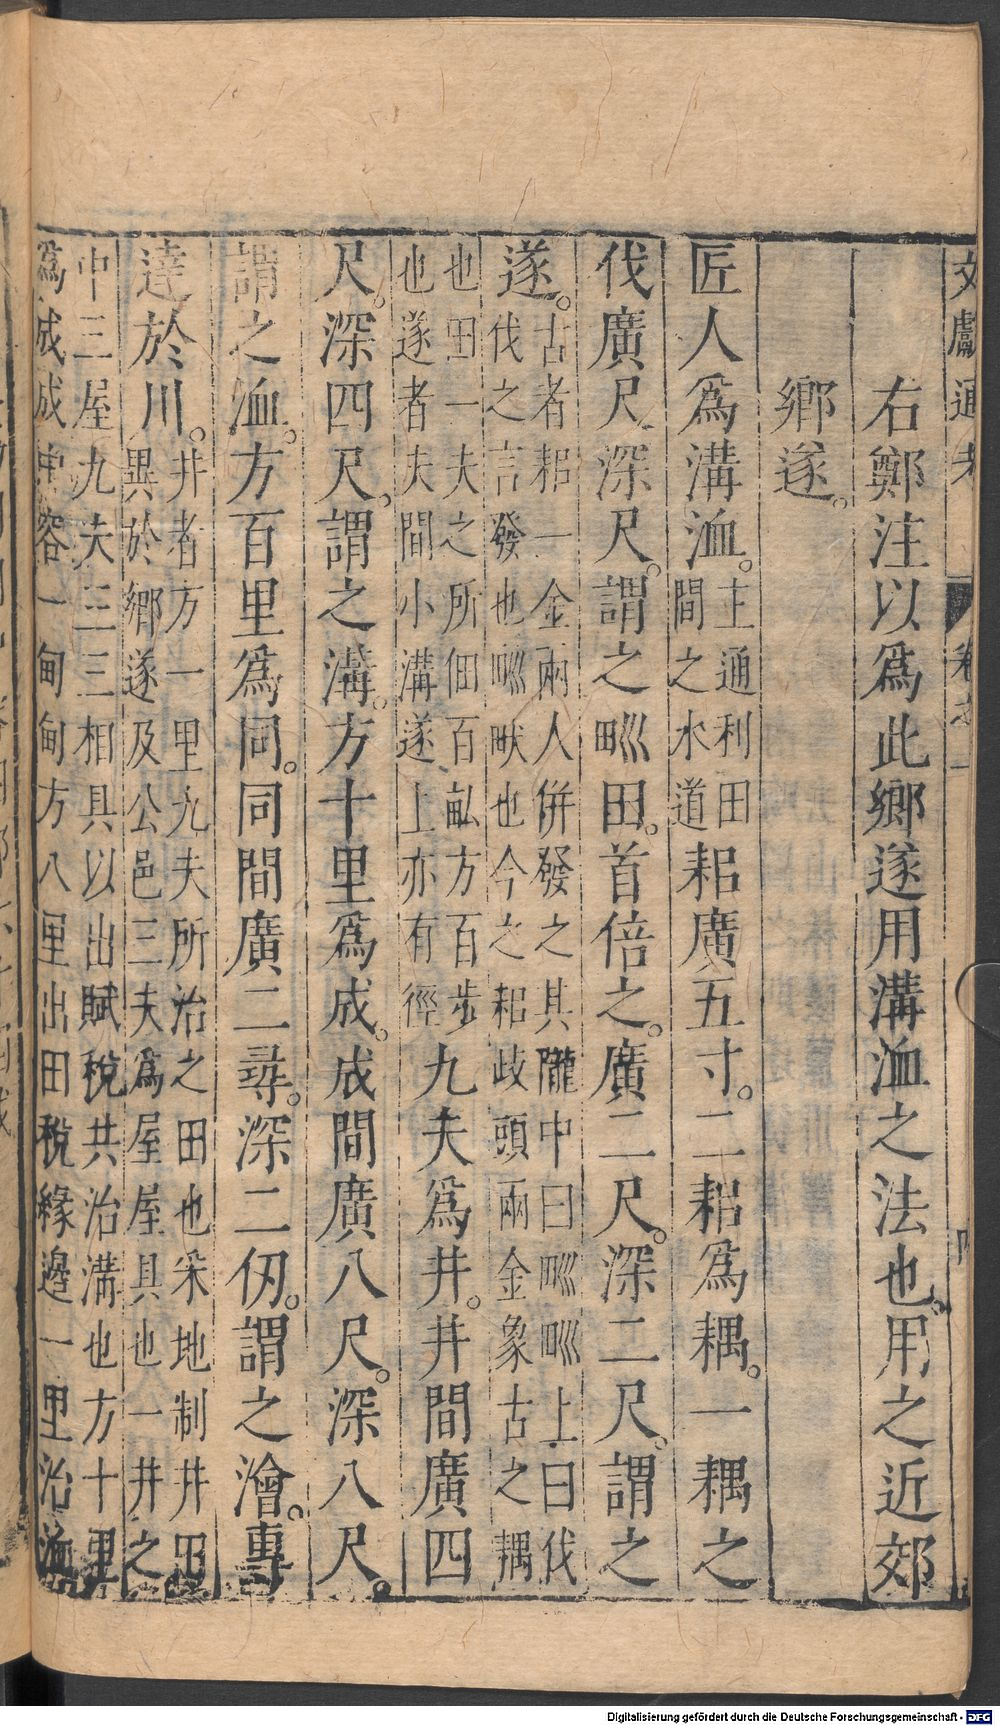 文獻通考 卷之一
右鄭注以爲此鄉遂用溝洫之法也。用之近郊
鄉遂。
匠人爲溝洫。主通利田間之水道耜廣五寸。二耜爲耦。一耦之
伐廣尺深尺。謂之𤰕田。首倍之。廣二尺。深二尺。謂之
遂。古者耜一金兩人併發之其隴中曰𤰕𤰕上曰伐伐之言發也𤰕畎也今之耜歧頭兩金象古之耦
也田一夫之所佃百畝方百步也遂者夫間小溝遂上亦有徑九夫爲井。井間廣四
尺。深四尺。謂之溝。方十里爲成。成間廣八尺。深八尺。
謂之洫。方百里爲同。同間廣二尋。深二仞。謂之澮。專
達於川。井者方一里九夫所治之田也采地制井田異於鄉遂及公邑三夫爲屋屋具也一井之
中三屋九夫三三相具以出賦稅共治溝也方十里爲成成中容一甸甸方八里出田稅緣邊一里治洫
Digitalisierung gefördert durch die Deutsche Forschungsgemeinschaft - DFG